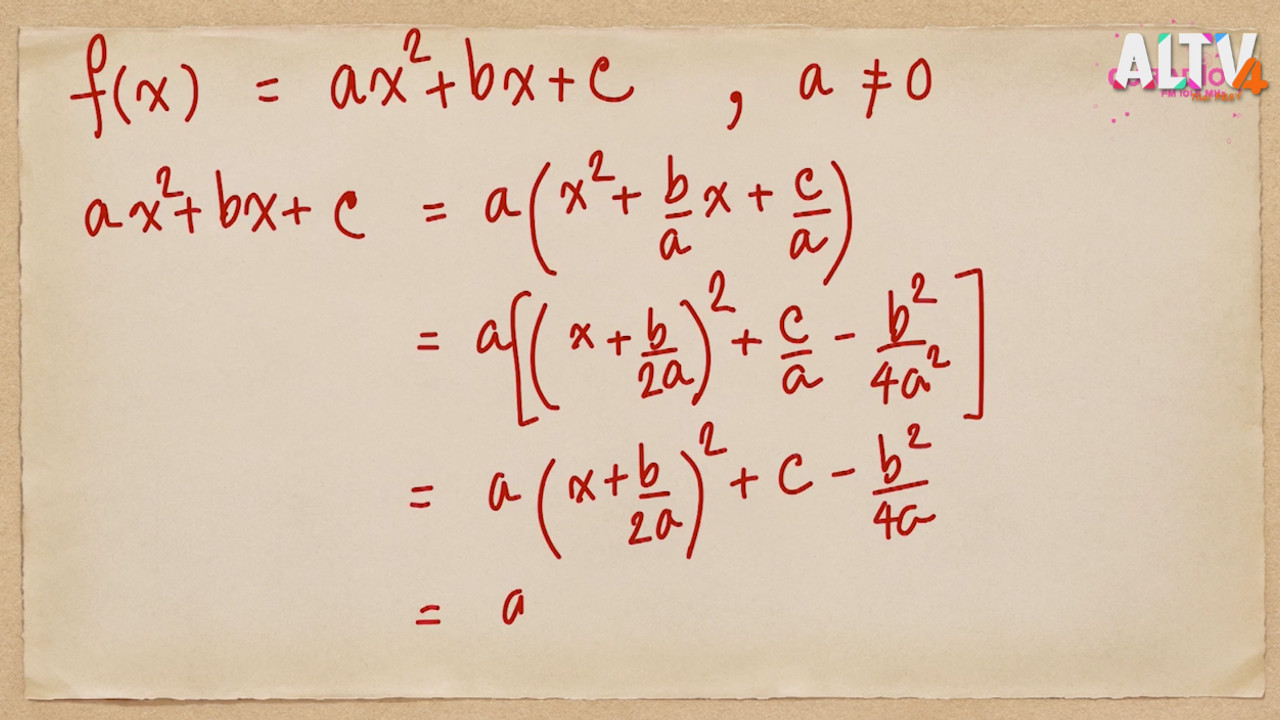 f(x) = ax²+bx+c , a ≠ 0
ax²+bx+c = a(x²+b/a x+c/a)
= a[(x+b/2a)²+c/a-b²/4a²]
= a(x+b/2a)²+c-b²/4a
= a
ALTV
4